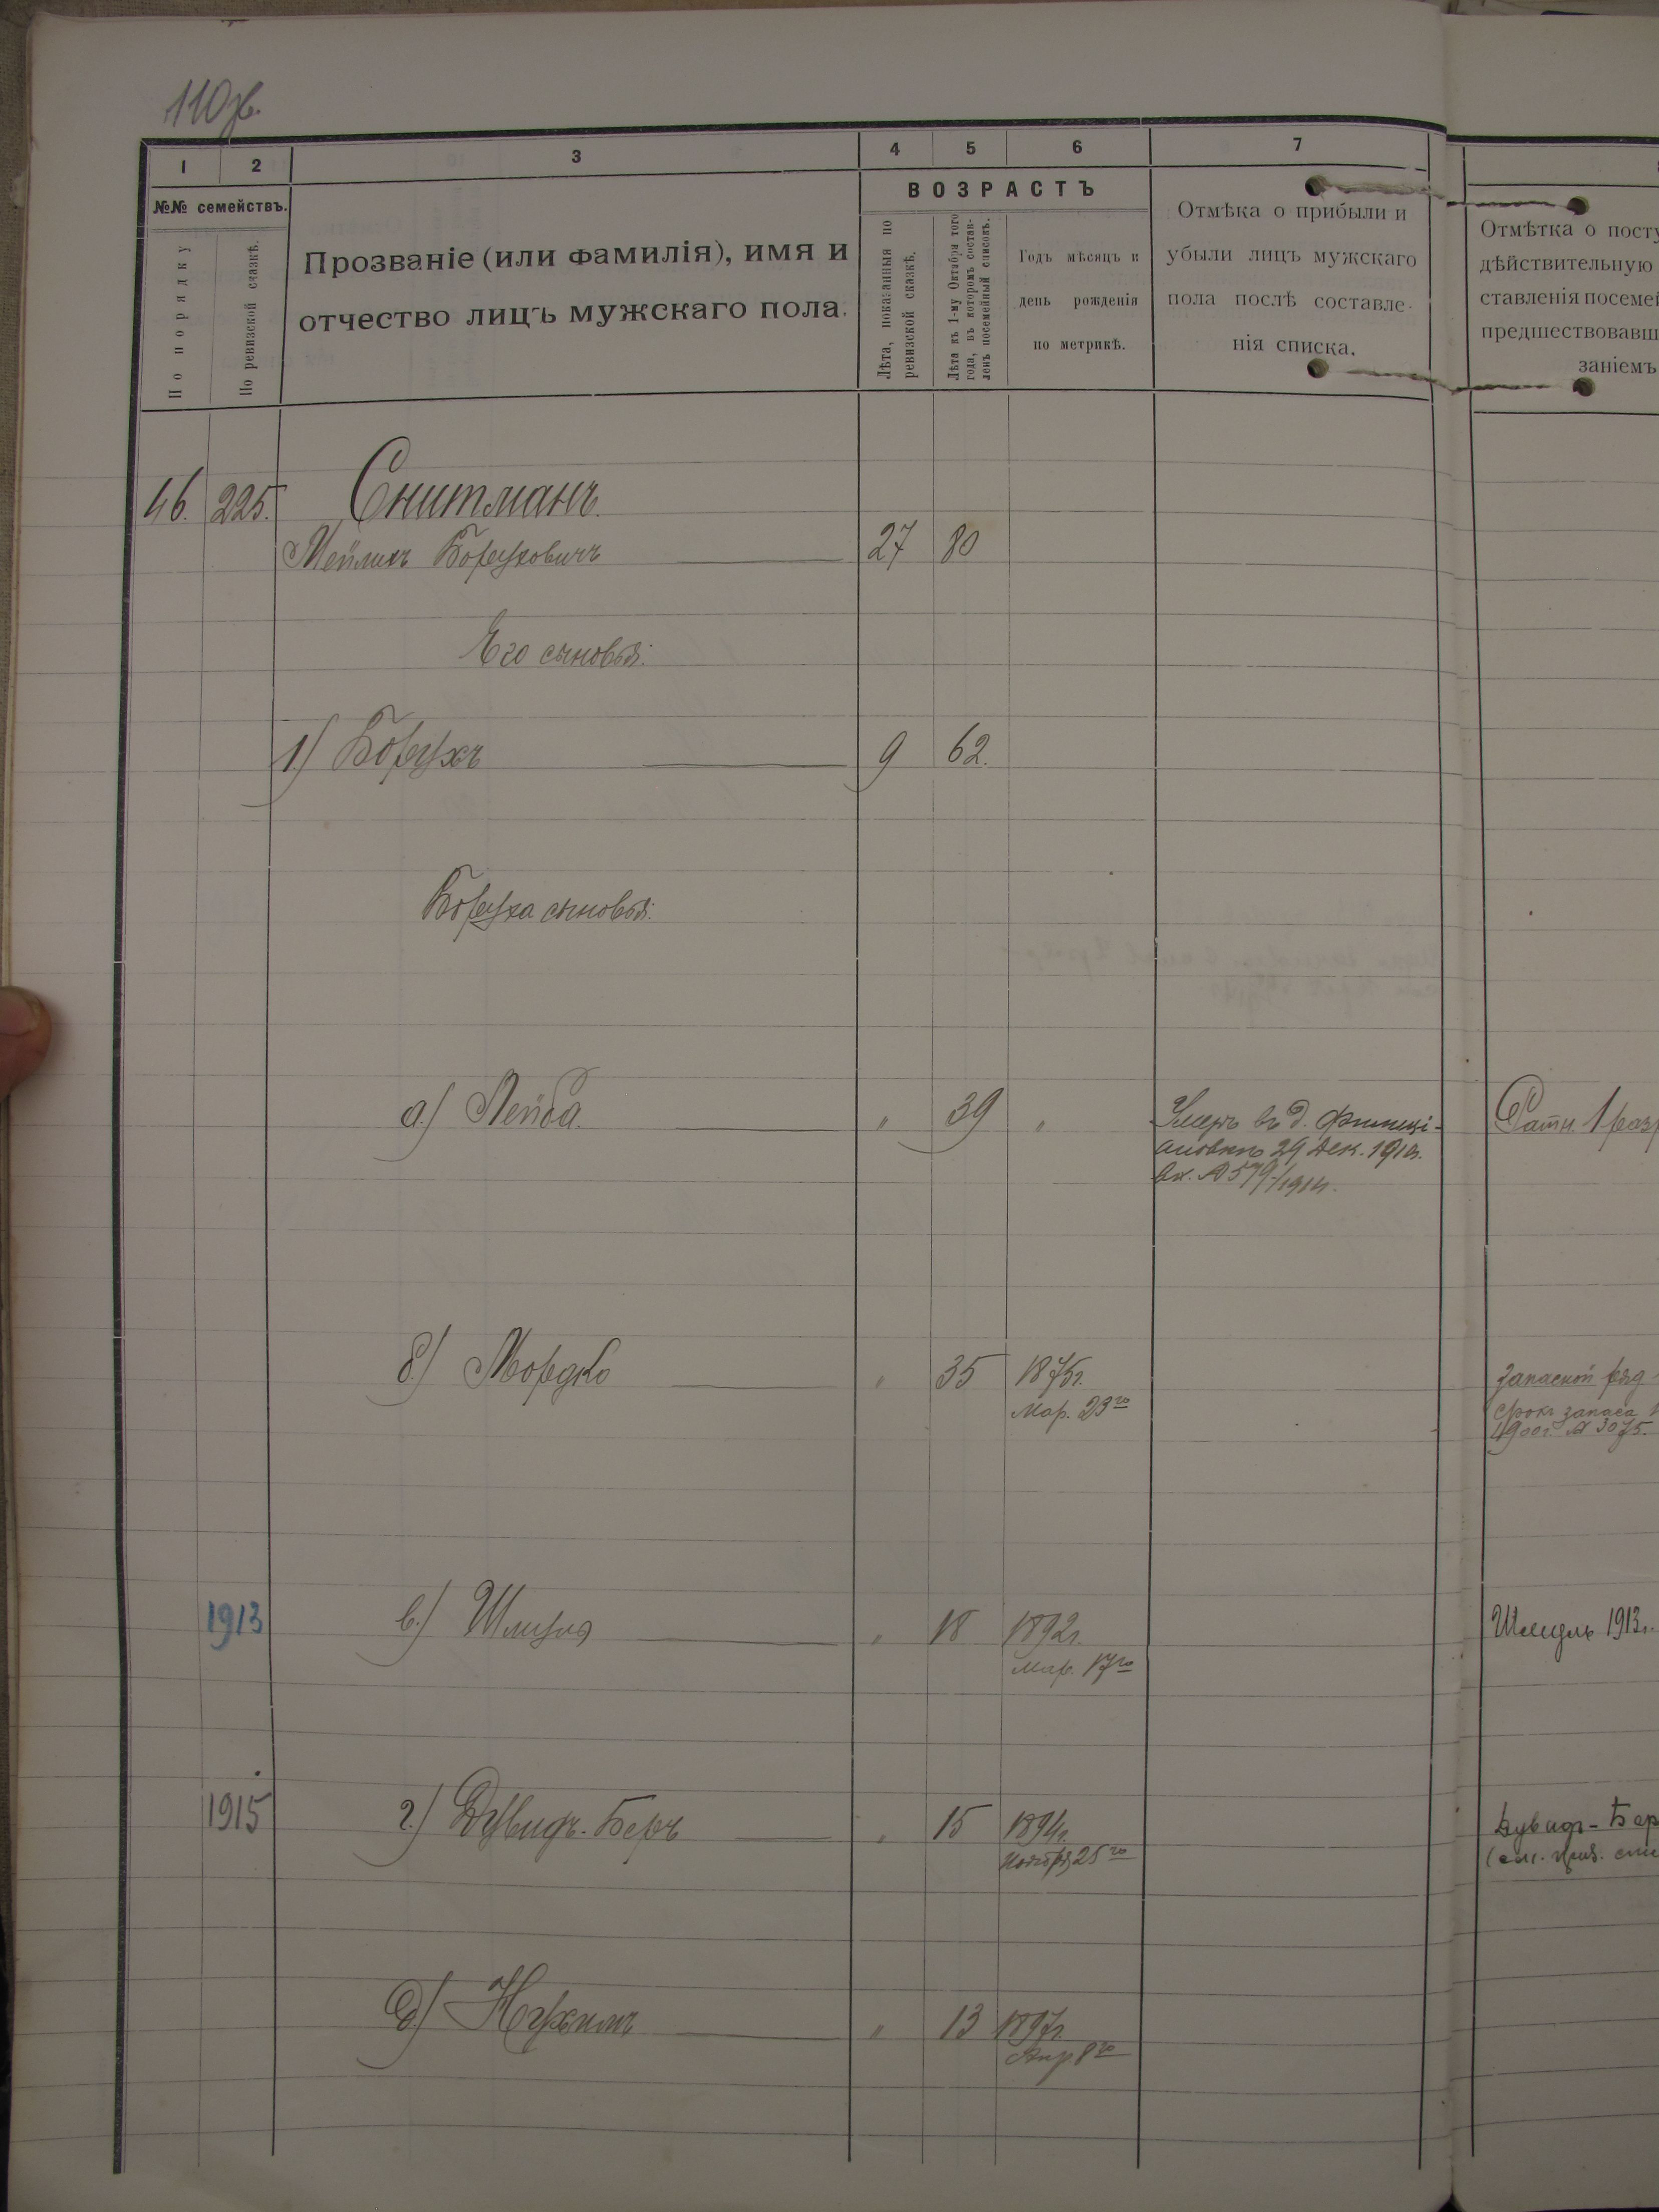 110об.
1 2 3 4 5 6 7
№№ семействъ.
По порядку
По ревизской сказкѣ.
Прозваніе (или фамилія), имя и
отчество лицъ мужскаго пола.
ВОЗРАСТЪ
Лѣта, показанныя по
ревизской сказкѣ.
Лѣта къ 1-му Октября того
года, въ которомъ состав-
ленъ посемейный списокъ.
Годъ мѣсяцъ и
день рожденія
по метрикѣ.
Отмѣка о прибыли и
убыли лицъ мужскаго
пола послѣ составле-
нія списка.
Отмѣтка о посту
дѣйствительную
ставленія посемей
предшествовавш
заніемъ
46. 225. Снитманъ.
Мейлихъ Боруховичъ 27 80
Его сыновья:
1) Борухъ 9 62.
Боруха сыновья:
а.) Лейба. " 39 "
Умеръ въ д.
29 Дек. 1913г.
вх. № 579/1914.
Ратн. 1 разр
б.) Мордко " 35 1875г.
Мар. 23го
Запасной ряд
срокъ запаса
1900г. № 3075.
1913 в.) Шмуль " 18 1892г.
Мар. 17го
Шмуль 1913г.
1915 г.) Дувидъ-Беръ " 15 1894г.
Ноября 25го
Дувидъ-Бер
(см. приз. спи
д.) Нухимъ " 13 1897г.
Апр. 8го